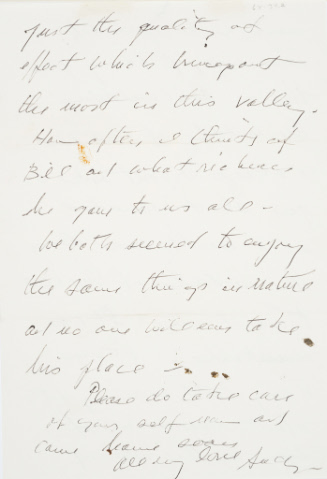 just the quality of
effect which
the most in this valley.
How often I think of
Bill and what richness
he gave to us all -
We both seemed to enjoy
the same things in nature
and no one will ever take
his place
Please do take care
of your self now and
come home soon
all my love Andy -